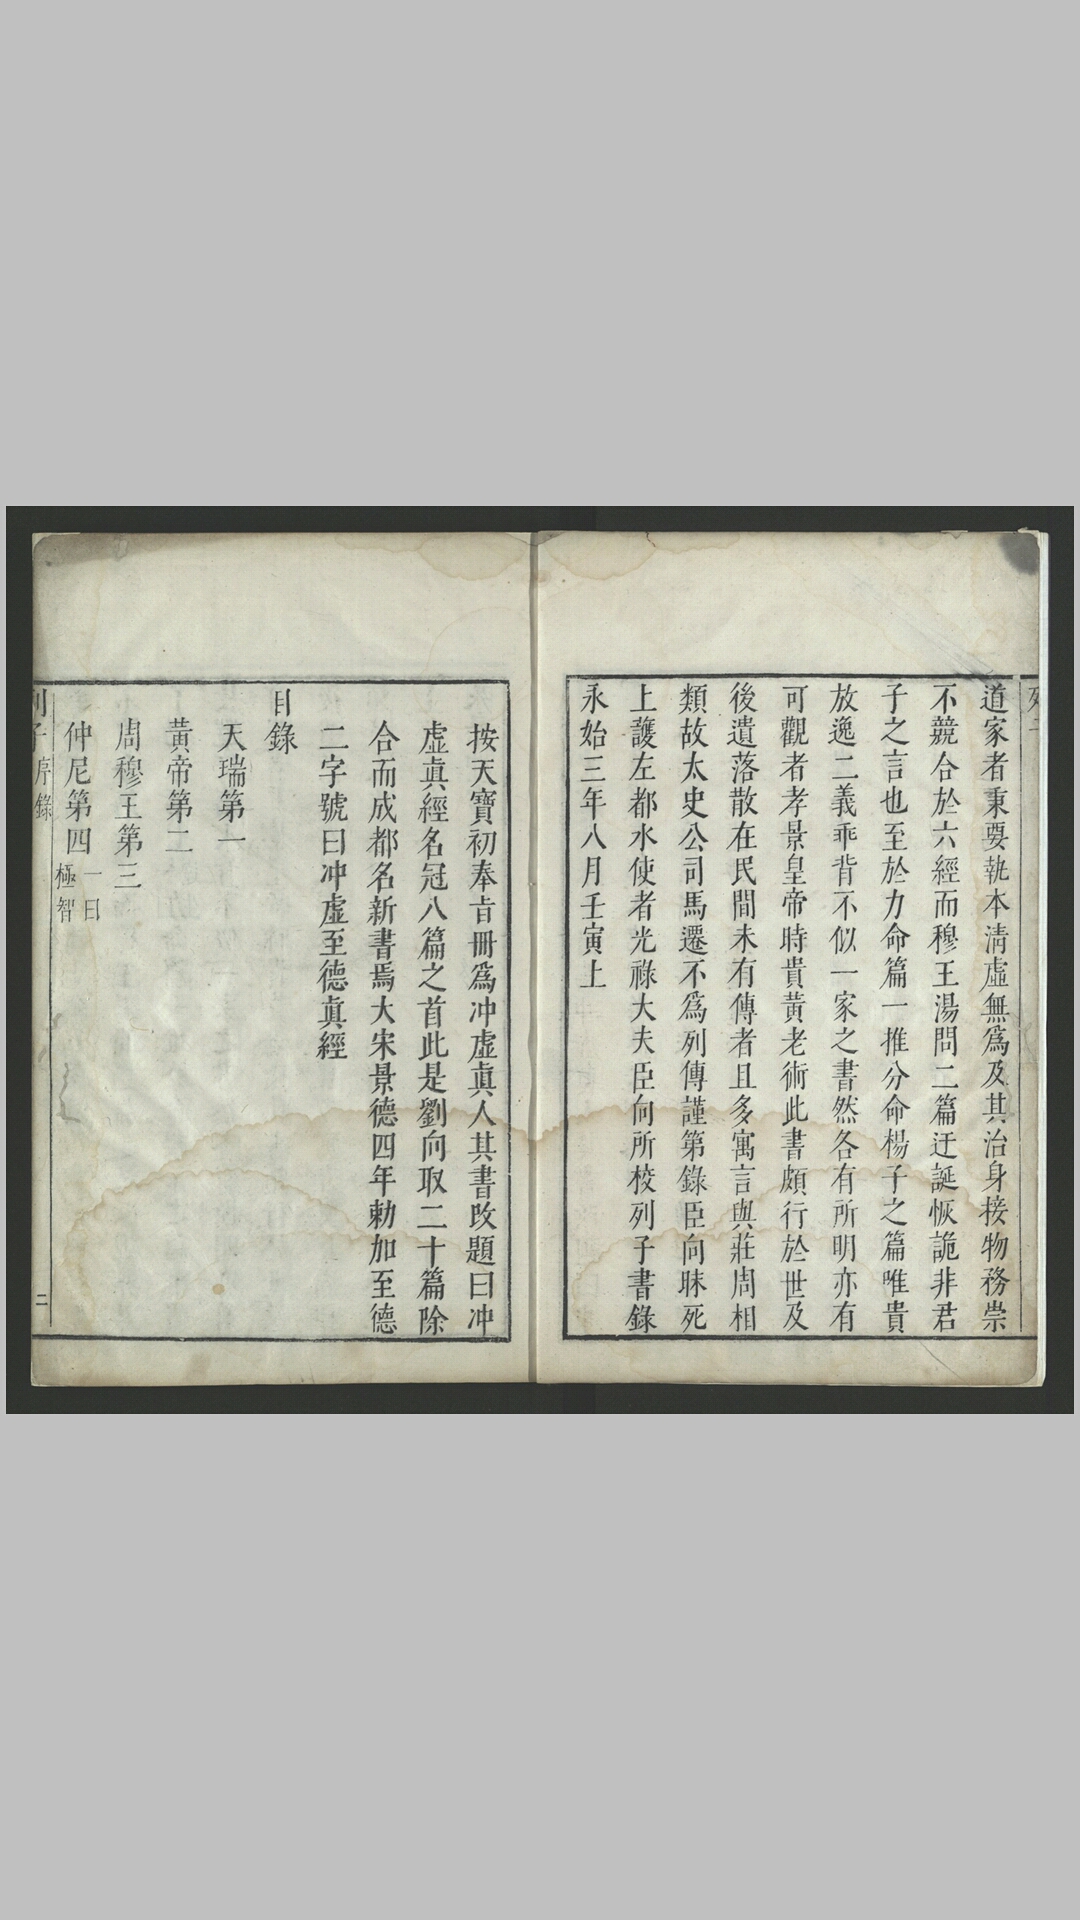 道家者秉要執本清虛無爲及其治身接物務崇
不競合於六經而穆王湯問二篇迂誕恢詭非君
子之言也至於力命篇一推分命楊子之篇唯貴
放逸二義乖背不似一家之書然各有所明亦有
可觀者孝景皇帝時貴黃老術此書頗行於世及
後遺落散在民間未有傳者且多寓言與莊周相
類故太史公司馬遷不爲列傳謹第錄臣向昧死
上護左都水使者光祿大夫臣向所校列子書錄
永始三年八月壬寅上
按天寶初奉旨冊爲冲虛眞人其書改題曰冲
虛眞經名冠八篇之首此是劉向取二十篇除
合而成都名新書焉大宋景德四年勅加至德
二字號曰冲虛至德眞經
目錄
天瑞第一
黃帝第二
周穆王第三
仲尼第四 一曰極智
列子序錄 二